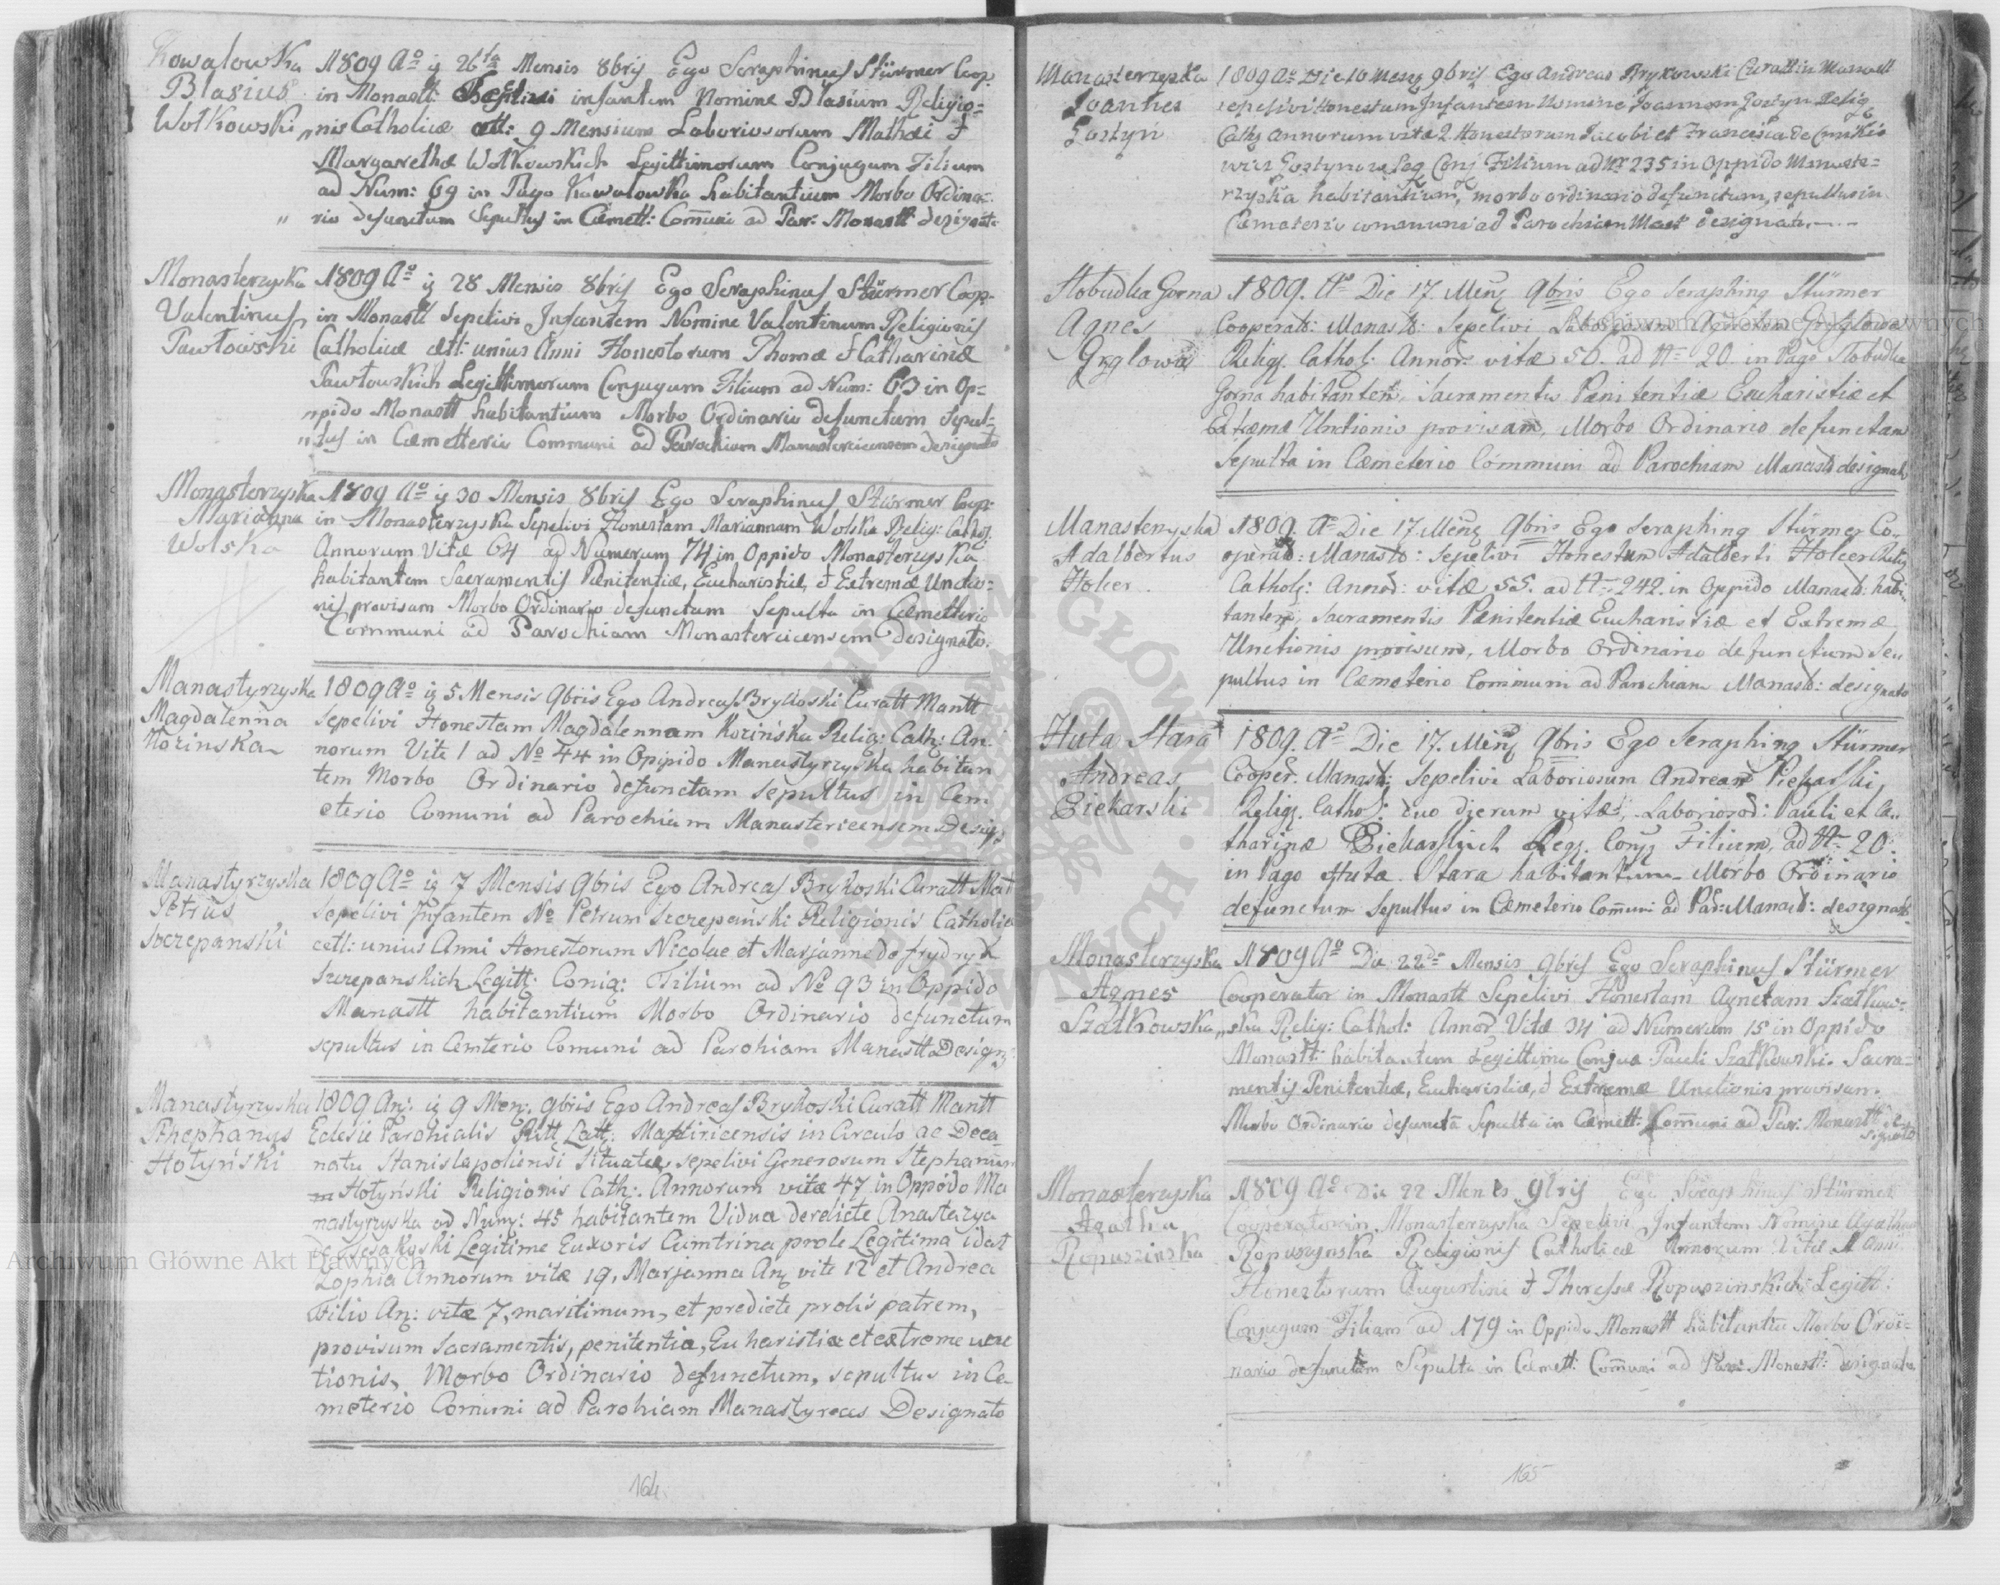 Kowalowka
Blasius
Wołkowski
1809 Aº iȷ 26ta Mensis 8bris Ego Seraphinus Stürmer Coop:
in Monastt: infantem Nomine Blasium Religio=
nis Catholicæ ætt: 9 Mensium Laboriosorum Mathæi &
Margarethæ Wołkowskich Legittimorum Conjugum Filium
ad Num: 69 in Pago Kowalowka habitantium Morbo Ordina=
rio defunctum Sepultus in Cæmett: Com̄uni ad Par: Monastt: designato
Monasterzyska
Valentinus
Pawłowski
1809 Aº iȷ 28 Mensis 8bris Ego Seraphinus Stürmer Coop:
in Monastt Sepelivi Infantem Nomine Valentinum Religionis
Catholicæ ætt: unius Anni Honestorum Thomæ & Catharinæ
Pawłowskich Legittimorum Conjugum Filium ad Num: 63 in Op=
pido Monastt habitantium Morbo Ordinario defunctum Sepul=
tus in Cæmetterio Communi ad Parochiam Monastericensem designato
Monasterzyska
Marianna
Wolska
1809 Aº iȷ 30 Mensis 8bris Ego Seraphinus Stürmer Coop:
in Monasterzyska Sepelivi Honestam Mariannam Wolska Relig: Cathol:
Annorum Vitæ 64 ad Numerum 74 in Oppido Monasterzyska
habitantem Sacramentis Pænitentiæ, Eucharistiæ, & Extremæ Unctio=
nis provisam Morbo Ordinario defunctum Sepulta in Cæmetterio
Communi ad Parochiam Monastericensem Designato.
Manastyrzyska
Magdalenna
Kozinska
1809 Aº iȷ 5 Mensis 9bris Ego Andreas Brykoski Curatt Mantt
sepelivi Honestam Magdalennam Kozińska Relig: Cath: An
norum Vite 1 ad Nº 44 in Opipido Manastyrzyska habitan
tem Morbo Ordinario defunctam sepultus in Cem
eterio Comuni ad Parochiam Manastericensem Desig.
Manastyrzyska
Petrus
Szczepanski
1809 Aº iȷ 7 Mensis 9bris Ego Andreas Brykoski Curatt Mat
sepelivi Infantem Nº Petrum Szczepański Religionis Catholic
ætt: unius Anni Honestorum Nicolae et Marjanne de frydryk
Szczepanskich Legitt: Conig: Filium ad Nº 93 in Oppido
Manastt habitantium Morbo Ordinario defunctum
sepultus in Cemterio Comuni ad Parohiam Manastta Design:
Manastyrzyska
Sthephanus
Hołyński
1809 An: iȷ 9 Men: 9bris Ego Andreas Brykoski Curatt Mantt
Eclesie Parohialis Ritt Latt: in Circulo ac Deca=
natu Stanislapoliensi Situatæ, sepelivi Generosum Stephanum
Hołyński Religionis Cath: Annorum vitæ 47 in Oppido Ma
nastyrzyska ad Num: 45 habitantem Vidua derelicte Anastazya
Legitime Euxoris Cumtrina prole Legitima id at
Zophia Annorum vitæ 19, Marjanna An: vite 12 et Andrea
Filio An: vitæ 7, maritimum, et predicte prolis patrem,
provisum sacramentis, penitentia, Eu haristiæ et extreme unc
tionis, Morbo Ordinario defunctum, sepultus in Ce
meterio Comuni ad Parohiam Manastyrcas Designato
164
Manasterzyska
Joannes
Gostyń
1809 Aº Die 10 Men: 9bris Ego Andreas Brykowski Curatt in Manastt
sepelivi Honestum Infantem Nomine Joannem Gostyn Relig
Cath annorum vitæ 2 Honestorum Jacobi et Francisca de
Gostynow Leg Conj Filium ad Nr 235 in Oppido Manaste=
rzyska habitantium, morbo ordinario defunctum, sepultus in
Cæmaterio communi ad Parochiam Mast designato.
Słobudka Gorna
Agnes
Gryglowa
1809. Aº Die 17. Men: 9bris Ego Seraphing Stürmer
Cooperat: Manast: Sepelivi Agnetem Gryglowa
Relig: Cathol: Annor: vitæ 50. ad Nº 20 in Pago Słobudka
Gorna habitantem, Sacramentis Pænitentiæ Eucharistiæ et
Extremæ Unctionis provisam, Morbo Ordinario defunctam
Sepulta in Cæmeterio Communi ad Parochiam Manast: designato
Manasterzyska
Adalbertus
Holcer
1809. Aº Die 17. Men: 9bris Ego Seraphing Stürmer Co=
operat: Manast: Sepelivi Honestum Adalberti Holcer Relig
Cathol: Annor: vitæ 55. ad Nº 242. in Oppido Manast: habi=
tantem, Sacramentis Pænitentiæ Eucharistiæ et Extremæ
Unctionis provisum, Morbo Ordinario defunctum Se=
pultus in Cæmeterio Communi ad Parochiam Manast: designato
Huta Stara
Andreas
Piekarski
1809. Aº Die 17. Men: 9bris Ego Seraphing Stürmer
Cooper. Manast: Sepelivi Laboriosum Andream Piekarski
Relig. Cathol: duo dierum vitæ, Laborioro: Pauli et Ca=
tharinæ Piekarskich Leg. Conj: Filium, ad Nº 20.
in Pago Huta Stara habitantium Morbo Ordinario
defunctum Sepultus in Cæmeterio Com̄uni ad Par: Manast: designato.
Monasterzyska
Agnes
Szatkowska
1809 Aº Die 22da Mensis 9bris Ego Seraphinus Stürmer
Cooperator in Monastt Sepelivi Honestam Agnetam Szatkow=
ska Relig: Cathol: Annor Vitæ 34 ad Numerum 15 in Oppido
Monastt: habitantem Legittima Conjua Pauli Szatkowski. Sacra=
mentis Penitentiæ, Eucharistiæ, & Extremæ Unctionis provisam.
Morbo Ordinario defuncta Sepulta in Cæmett: Com̄uni ad Par: Monastt: de
signato
Monasterzyska
Agatha
Ropuszinska
1809 Aº Die 22 Menis 9bris Ego Seraphinus Stürmer
Cooperator in Monasterzyska Sepelivi Infantem Nomine Agatham
Ropuszynska Religionis Catholicæ Annorum Vitæ 1 Anni
Honestorum Augustini & Theresiæ Ropuszinskich Legitt:
Conjugum Filiam ad 179 in Oppido Monastt habitantiu Morbo Ordi=
nario defunctam Sepulta in Cemett: Com̄uni ad Par: Monastt: designato
165
Archiwum Główne Akt Dawnych
Archiwum Główne Akt Dawnych